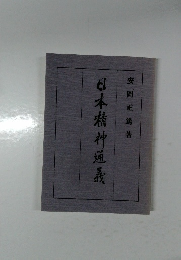 安岡正篤著
日本精神通義